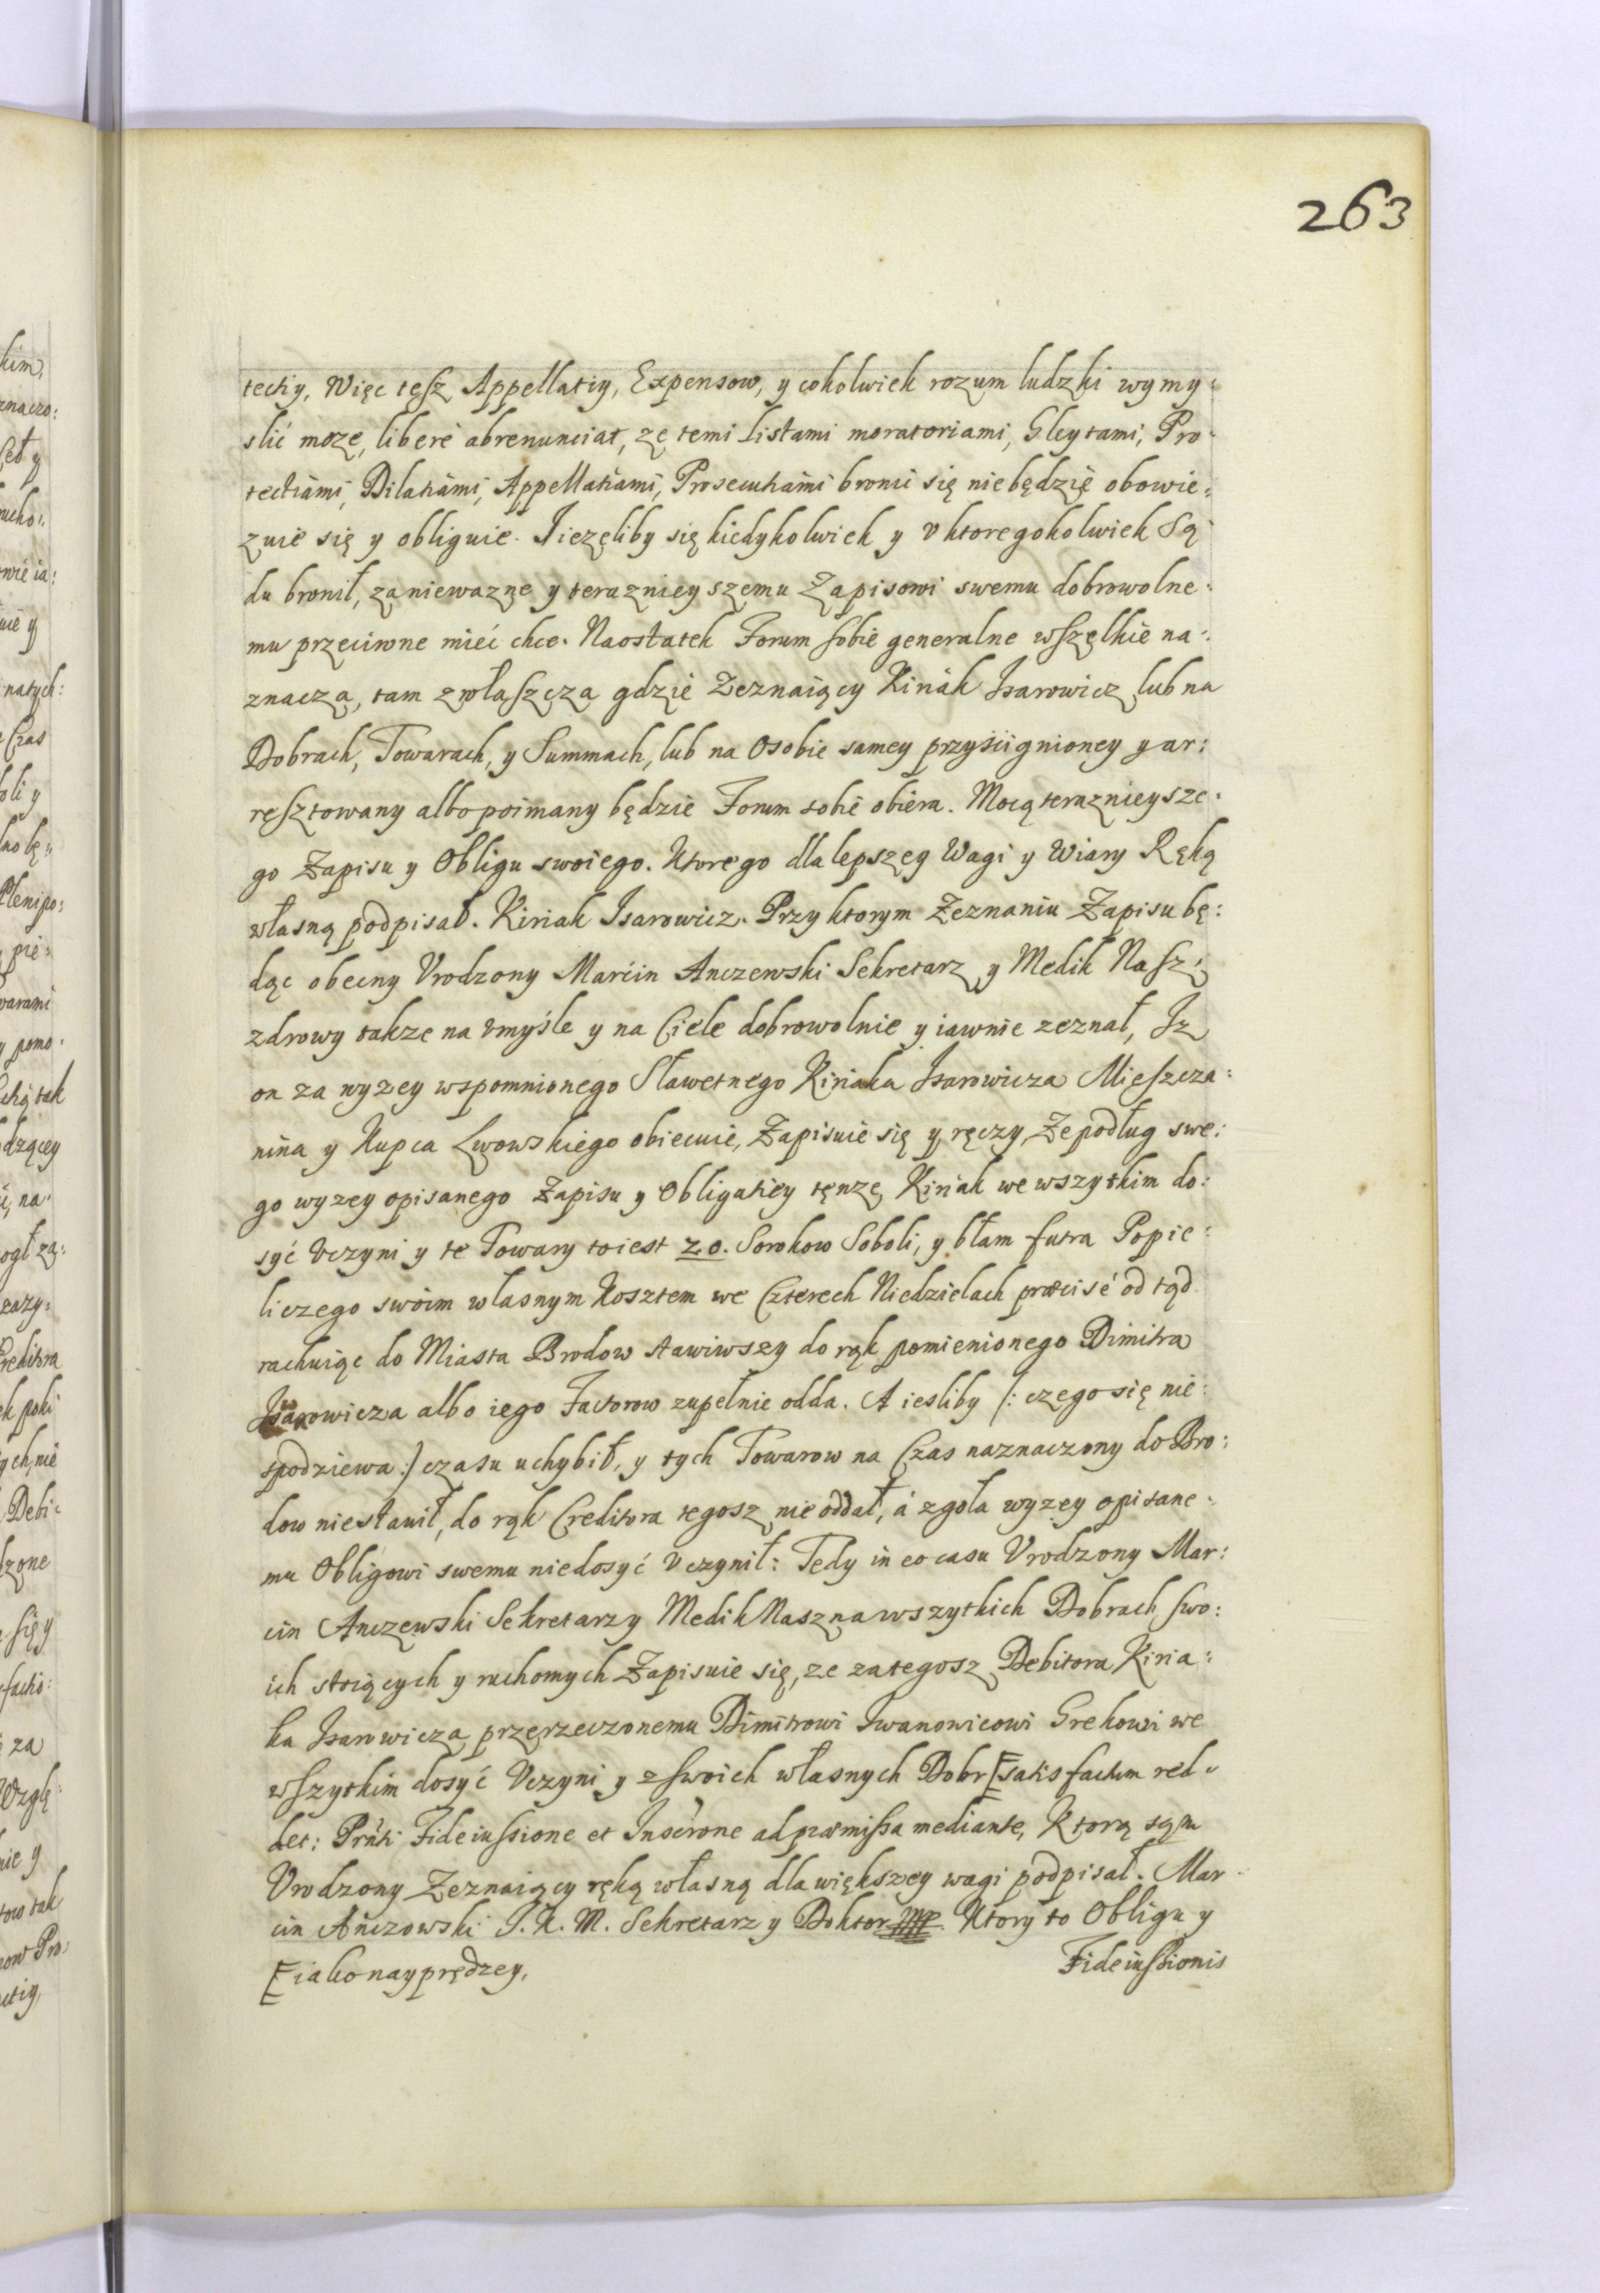 263
tectiy, Więc tesz Appellatiy, Expensow, y cokolwiek rozum ludzki wymy:
slić moze, liberè abrenunciat, ze temi listami moratoriami, Gleytami, Pro:
tectiami, Dilatiami, Appellatiami, Prosecutiami bronić się niebędzie obowie:
zuie się y obliguie. Jiezeliby się kiedykolwiek y v ktoregokolwiek Są
du bronił, za niewazne y teraznieyszemu Zapisowi swemu dobrowolne:
mu przeciwne mieć chce. Naostatek Forum sobie generalne wszelkie na:
znacza, tam zwłaszcza gdzie Zeznaiący Kiriak Isarowicz lub na
Dobrach, Towarach, y Summach, lub na Osobie samey przyścignioney y ar:
resztowany albo poimany będzie Forum sobie obiera. Mocą teraznieysze:
go Zapisu y Obligu swoiego. Ktorego dla lepszey Wagi y Wiary Ręką
własną podpisał. Kiriak Isarowicz. Przy ktorym Zeznaniu Zapisu bę:
dąc obecny Vrodzony Marcin Anczewski Sekretarz y Medik Nasz,
zdrowy takze na vmyśle y na Ciele dobrowolnie y iawnie zeznał, Iz
on za wyzey wspomnionego Sławetnego Kiriaka Isarowicza Mieszcza:
nina y Kupca Lwowskiego obiecuie, Zapisuie się y ręczy, Ze podług swe:
go wyzey opisanego Zapisu y Obligatiey tenze Kiriak we wszytkim do:
syć Vczyni y te Towary toiest 20. Sorokow Soboli, y błam futra Popie:
liczego swoim własnym Kosztem we Czterech Niedzielach præcisè od tąd
rachuiąc do Miasta Brodow stawiwszy do rąk pomienionego Dimitra
Iwanowicza albo iego Factorow zupełnie odda. A iesliby /: czego się nie:
spodziewa :/ czasu uchybił, y tych Towarow na Czas naznaczony do Bro:
dow niestawił, do rąk Creditora tegosz nie oddał, á zgoła wyzey opisane:
mu Obligowi swemu niedosyć Vczynił: Tedy in eo casu Vrodzony Mar:
cin Anczewski Sekretarz y Medik Nasz na wszytkich Dobrach swo:
ich stoiących y ruchomych Zapisuie się, ze za tegosz Debitora Kiria:
ka Isarowicza przerzeczonemu Dimitrowi Iwanowicowi Grekowi we
wszytkim dosyć Vczyni y z swoich własnych Dobr [satisfactum red:
det: Prñti Fideiussione et Inscr̃one ad præmissa mediante, Ktorą sąm
Vrodzony Zeznaiący ręką własną dla większey wagi podpisał. Mar:
cin Anczowski J. K. M. Sekretarz y Doktor mp. Ktory to Obligu y
[iako nayprędzey,
Fideiussionis